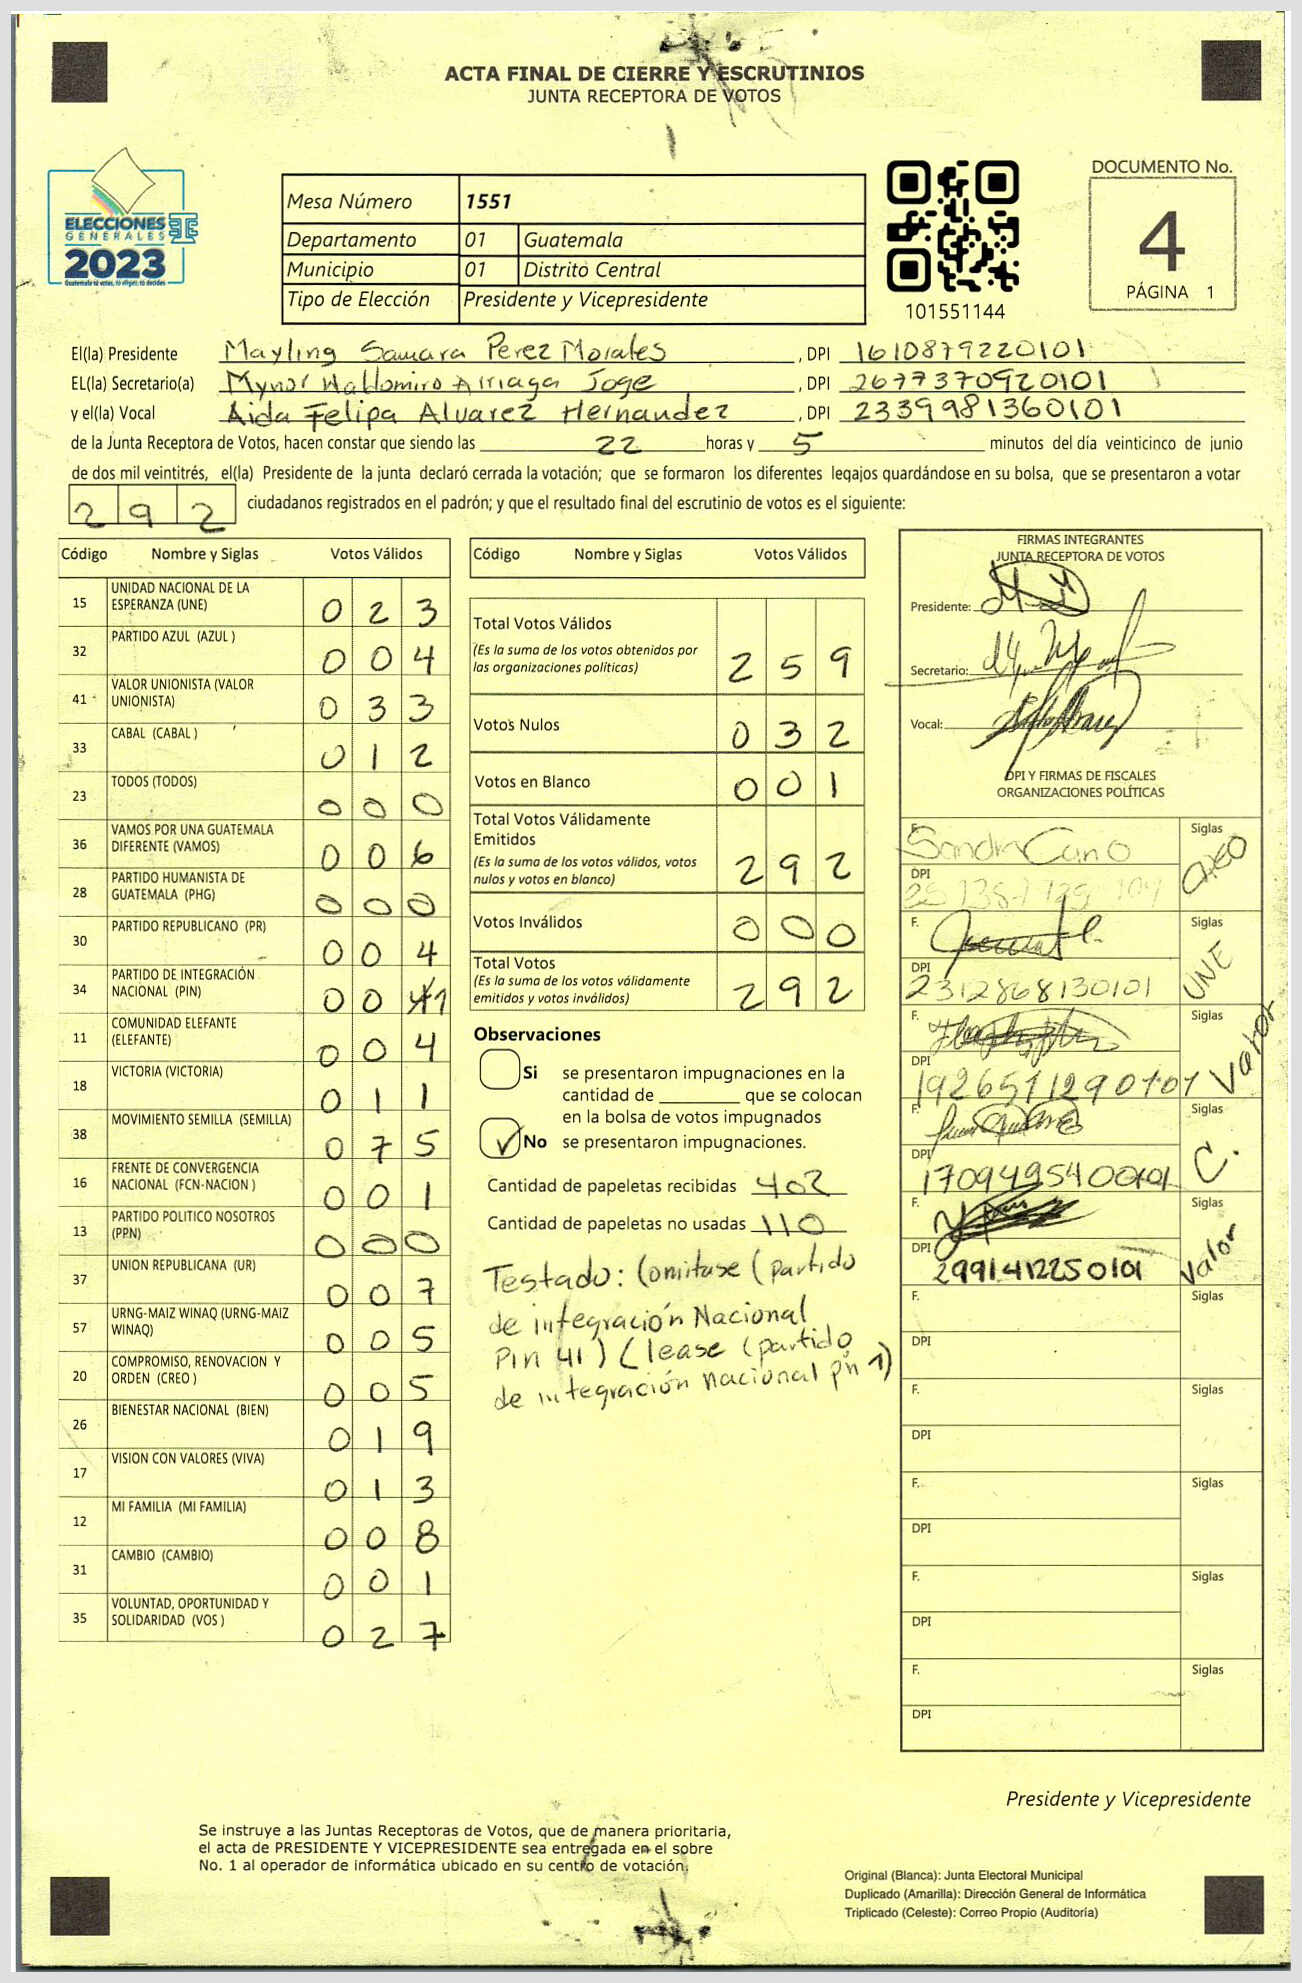 ACTA FINAL DE CIERRE Y ESCRUTINIOS
JUNTA RECEPTORA DE VOTOS
ELECCIONES
GENERALES
2023
Guatemala tú votas, tú eliges, tú decides
Mesa Número 1551
Departamento 01 Guatemala
Municipio 01 Distrito Central
Tipo de Elección Presidente y Vicepresidente
101551144
DOCUMENTO No.
4
PÁGINA 1
El(la) Presidente Mayling Samara Perez Morales , DPI 1610879220101
EL(la) Secretario(a) Mynor Arriaga Joge , DPI 2677370920101
y el(la) Vocal Aida Felipa Alvarez Hernandez , DPI 2339981360101
de la Junta Receptora de Votos, hacen constar que siendo las 22 horas y 5 minutos del día veinticinco de junio
de dos mil veintitrés, el(la) Presidente de la junta declaró cerrada la votación; que se formaron los diferentes legajos guardándose en su bolsa, que se presentaron a votar
292 ciudadanos registrados en el padrón; y que el resultado final del escrutinio de votos es el siguiente:
Código Nombre y Siglas Votos Válidos
15 UNIDAD NACIONAL DE LA ESPERANZA (UNE) 0 2 3
32 PARTIDO AZUL (AZUL ) 0 0 4
41 VALOR UNIONISTA (VALOR UNIONISTA) 0 3 3
33 CABAL (CABAL ) 0 1 2
23 TODOS (TODOS) 0 0 0
36 VAMOS POR UNA GUATEMALA DIFERENTE (VAMOS) 0 0 6
28 PARTIDO HUMANISTA DE GUATEMALA (PHG) 0 0 0
30 PARTIDO REPUBLICANO (PR) 0 0 4
34 PARTIDO DE INTEGRACIÓN NACIONAL (PIN) 0 0 1
11 COMUNIDAD ELEFANTE (ELEFANTE) 0 0 4
18 VICTORIA (VICTORIA) 0 1 1
38 MOVIMIENTO SEMILLA (SEMILLA) 0 7 5
16 FRENTE DE CONVERGENCIA NACIONAL (FCN-NACION ) 0 0 1
13 PARTIDO POLITICO NOSOTROS (PPN) 0 0 0
37 UNION REPUBLICANA (UR) 0 0 7
57 URNG-MAIZ WINAQ (URNG-MAIZ WINAQ) 0 0 5
20 COMPROMISO, RENOVACION Y ORDEN (CREO ) 0 0 5
26 BIENESTAR NACIONAL (BIEN) 0 1 9
17 VISION CON VALORES (VIVA) 0 1 3
12 MI FAMILIA (MI FAMILIA) 0 0 8
31 CAMBIO (CAMBIO) 0 0 1
35 VOLUNTAD, OPORTUNIDAD Y SOLIDARIDAD (VOS ) 0 2 7
Código Nombre y Siglas Votos Válidos
Total Votos Válidos 2 5 9
(Es la suma de los votos obtenidos por
las organizaciones políticas)
Votos Nulos 0 3 2
Votos en Blanco 0 0 1
Total Votos Válidamente
Emitidos 2 9 2
(Es la suma de los votos válidos, votos
nulos y votos en blanco)
Votos Inválidos 0 0 0
Total Votos 2 9 2
(Es la suma de los votos válidamente
emitidos y votos inválidos)
Observaciones
Si se presentaron impugnaciones en la
cantidad de ________ que se colocan
en la bolsa de votos impugnados
No se presentaron impugnaciones.
Cantidad de papeletas recibidas 402
Cantidad de papeletas no usadas 110
Testado: (omitase (partido
de integración Nacional
Pin 41) (lease (partido
de integración nacional pin 1)
FIRMAS INTEGRANTES
JUNTA RECEPTORA DE VOTOS
Presidente:
Secretario:
Vocal:
DPI Y FIRMAS DE FISCALES
ORGANIZACIONES POLÍTICAS
F. Sandra Cano Siglas CREO
DPI
F. Siglas UNE
DPI 2312868130101
F. Siglas Valor
DPI 1926571290101
F. Siglas C.
DPI 1709495400101
F. Siglas Valor
DPI 2991412250101
F. Siglas
DPI
F. Siglas
DPI
F. Siglas
DPI
F. Siglas
DPI
F. Siglas
DPI
Presidente y Vicepresidente
Se instruye a las Juntas Receptoras de Votos, que de manera prioritaria,
el acta de PRESIDENTE Y VICEPRESIDENTE sea entregada en el sobre
No. 1 al operador de informática ubicado en su centro de votación.
Original (Blanca): Junta Electoral Municipal
Duplicado (Amarilla): Dirección General de Informática
Triplicado (Celeste): Correo Propio (Auditoría)